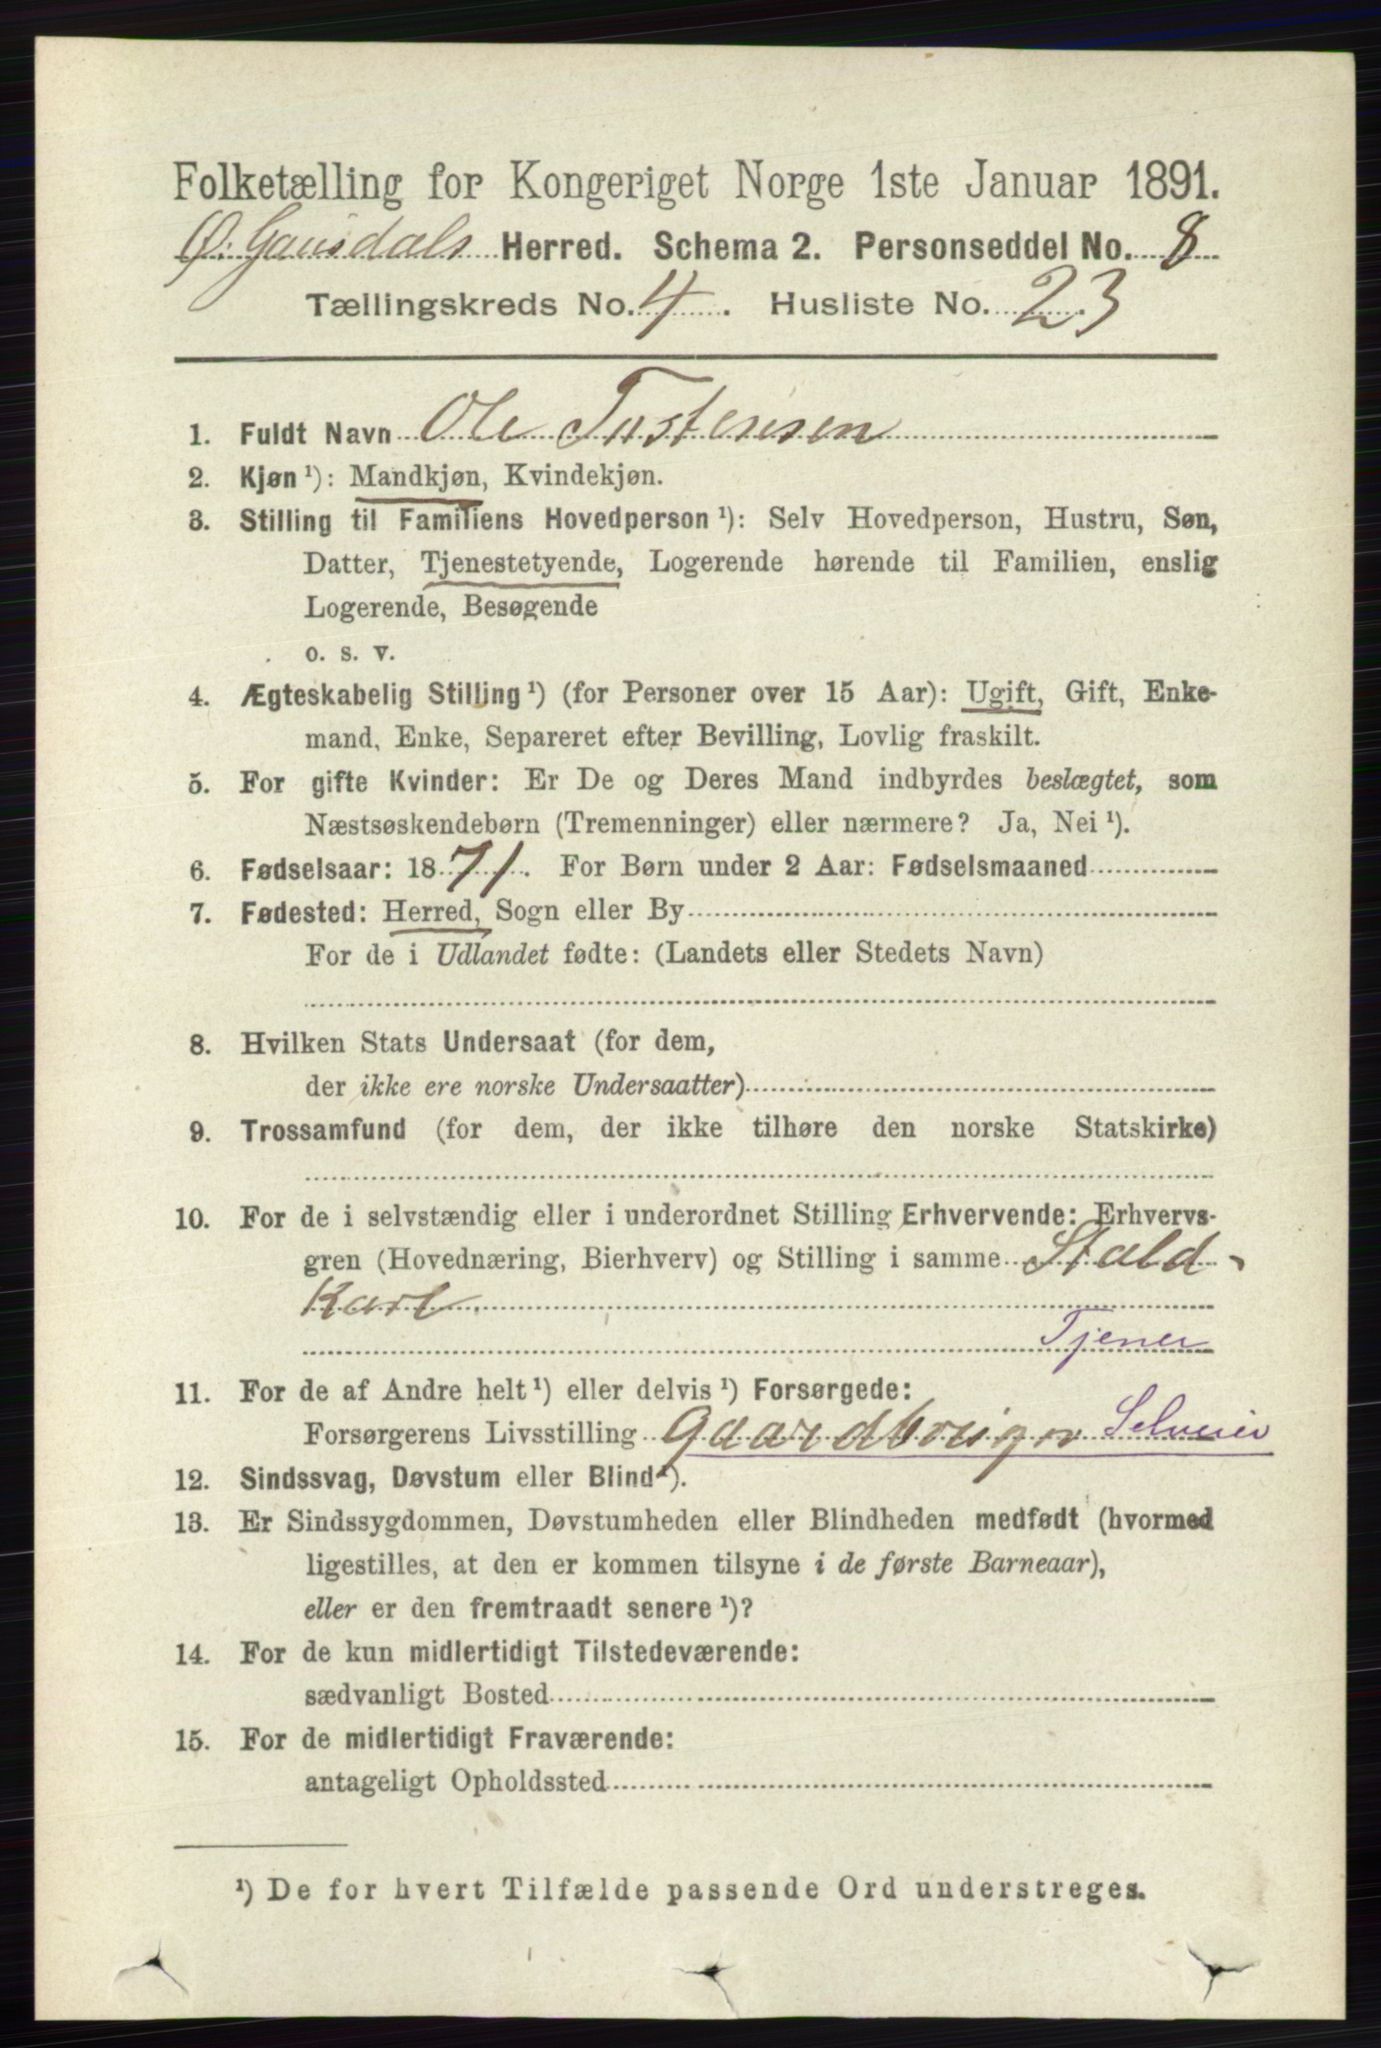 Folketælling for Kongeriget Norge 1ste Januar 1891.
Ø. Gausdals Herred. Schema 2. Personseddel No. 8
Tællingskreds No. 4. Husliste No. 23
1. Fuldt Navn Ole Tostensen
2. Kjøn ¹): Mandkjøn, Kvindekjøn.
3. Stilling til Familiens Hovedperson ¹): Selv Hovedperson, Hustru, Søn,
Datter, Tjenestetyende, Logerende hørende til Familien, enslig
Logerende, Besøgende
o. s. v.
4. Ægteskabelig Stilling ¹) (for Personer over 15 Aar): Ugift, Gift, Enke-
mand, Enke, Separeret efter Bevilling, Lovlig fraskilt.
5. For gifte Kvinder: Er De og Deres Mand indbyrdes beslægtet, som
Næstsøskendebørn (Tremenninger) eller nærmere? Ja, Nei ¹).
6. Fødselsaar: 1871. For Børn under 2 Aar: Fødselsmaaned
7. Fødested: Herred, Sogn eller By
For de i Udlandet fødte: (Landets eller Stedets Navn)
8. Hvilken Stats Undersaat (for dem,
der ikke ere norske Undersaatter)
9. Trossamfund (for dem, der ikke tilhøre den norske Statskirke)
10. For de i selvstændig eller i underordnet Stilling Erhvervende: Erhvervs-
gren (Hovednæring, Bierhverv) og Stilling i samme Stald-
Karl
Tjener
11. For de af Andre helt ¹) eller delvis ¹) Forsørgede:
Forsørgerens Livsstilling Gaardbruiger Selveier
12. Sindssvag, Døvstum eller Blind ¹).
13. Er Sindssygdommen, Døvstumheden eller Blindheden medfødt (hvormed
ligestilles, at den er kommen tilsyne i de første Barneaar),
eller er den fremtraadt senere ¹)?
14. For de kun midlertidigt Tilstedeværende:
sædvanligt Bosted
15. For de midlertidigt Fraværende:
antageligt Opholdssted
¹) De for hvert Tilfælde passende Ord understreges.